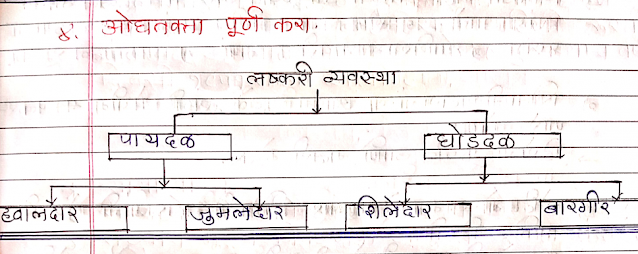 ४. ओघतक्ता पूर्ण करा.
लष्करी व्यवस्था
पायदळ घोडदळ
हवालदार जुमलेदार शिलेदार बारगीर